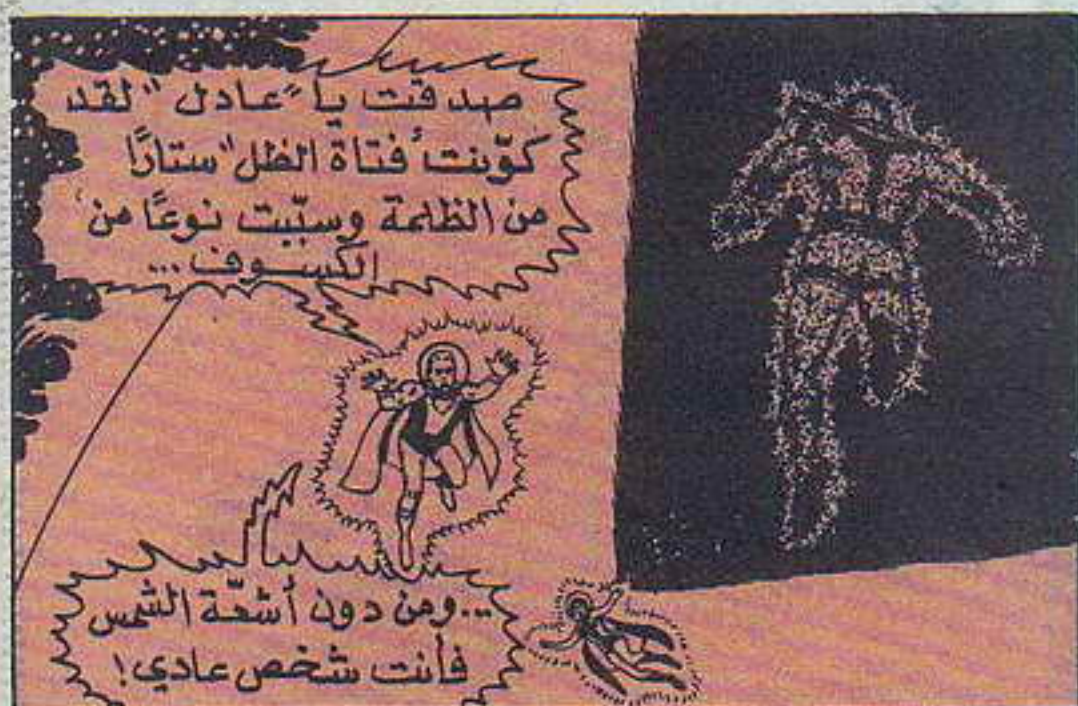 صدقت يا "عادل" لقد
كوّنت "فتاة الظل" ستارًا
من الظلمة وسبّبت نوعًا من
الكسوف...
...ومن دون أشعّة الشمس
فأنت شخص عادي!